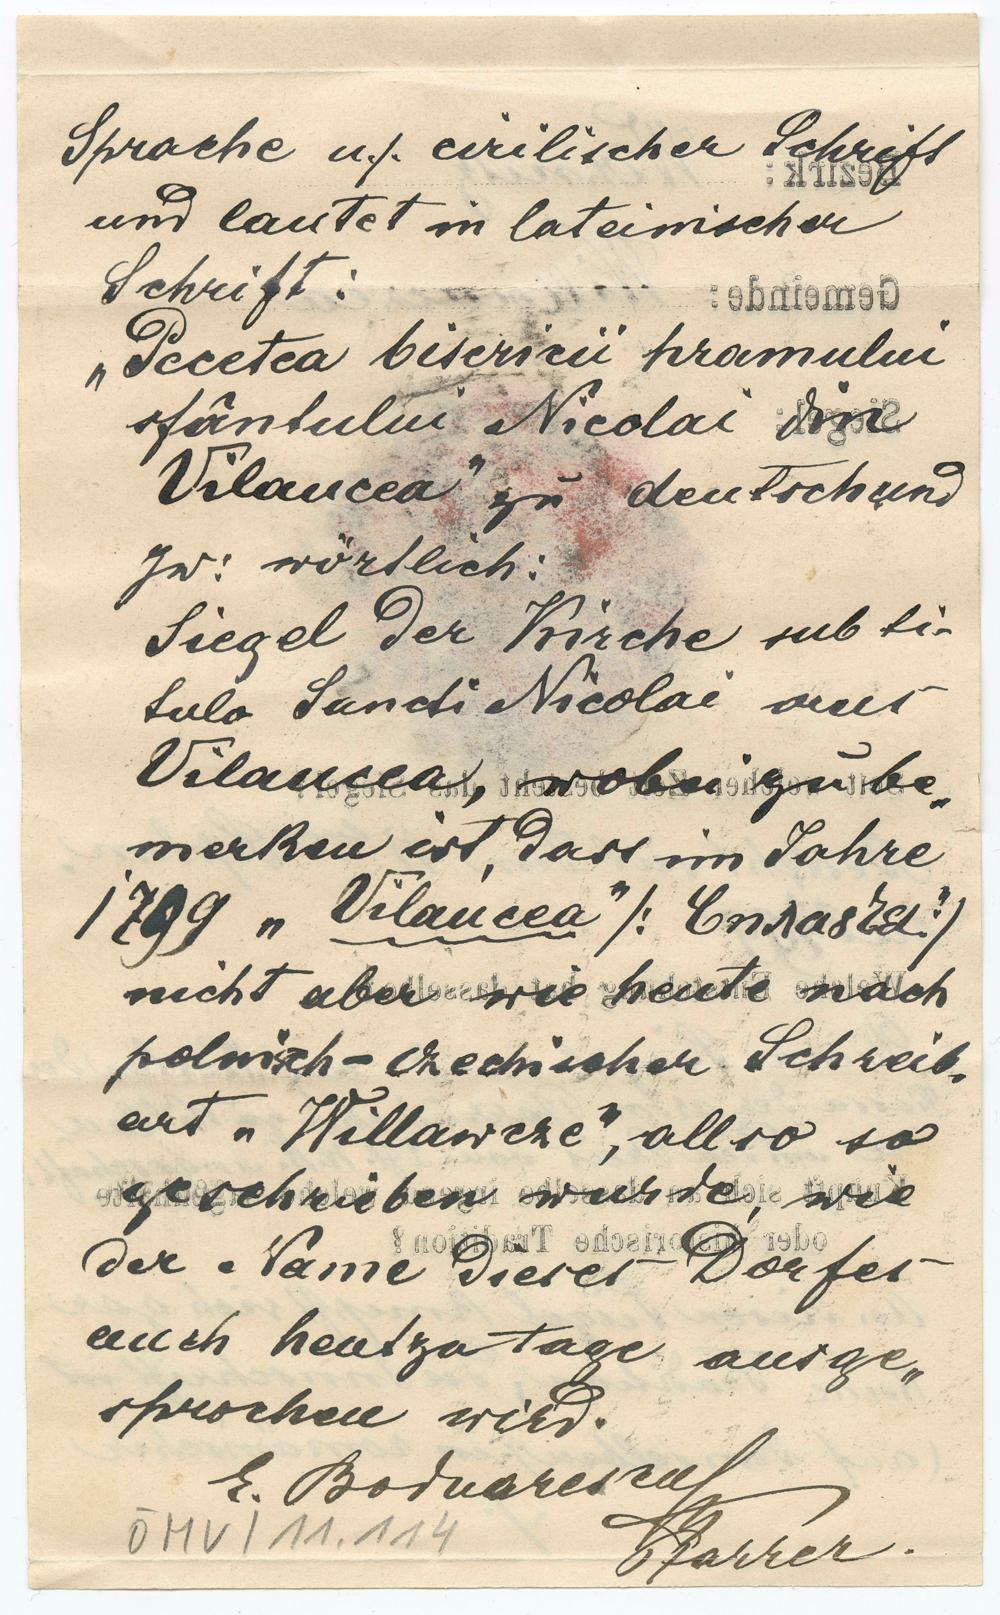 Sprache u./. cirilischer Schrift
und lautet in lateinischer
Schrift:
„Pecetea bisericii hramului
sfântului Nicolai din
Vilaucea" zu deutsch und
zw: wörtlich:
Siegel der Kirche sub ti-
tulo Sancti Nicolai aus
Vilaucea, wobei zu be„
merken ist, dass im Jahre
1799 „Vilaucea" /: :/
nicht aber wie heute nach
polnisch-czechischer Schreib„
art „Willawcze", allso so
geschrieben wurde, wie
der Name dieses Dorfes
auch heutzutage ausge„
sprochen wird.
E. Bodnarescul
Pfarrer.
ÖMV/11.114
Bezirk:
Gemeinde:
Siegel:
Seit welcher Zeit besteht das Siegel?
Welche Entstehung hat dasselbe?
Knüpft sich an dasselbe irgend welche sagenhafte
oder historische Tradition?